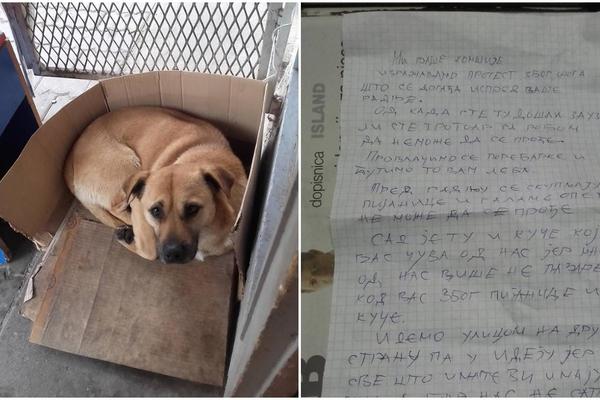 Ми ваше комшије
изражавамо протест због онога
што се догађа испред ваше
радње.
Од када сте ту дошли зау
ли сте тротоар са робом
да неможе да се прође.
Провлачимо се поребарке и
ћутимо то вам леба
Пред радњу се скупљају
пијанице и галаме опет
не може да се прође
Сад је ту и куче кој
вас чува од нас јер
од нас више не
код вас због пијанице и
куче.
Идемо улицом на дру
страну па у Идеју јер
све што имате ви имају
нас не
dopisnica ISLAND